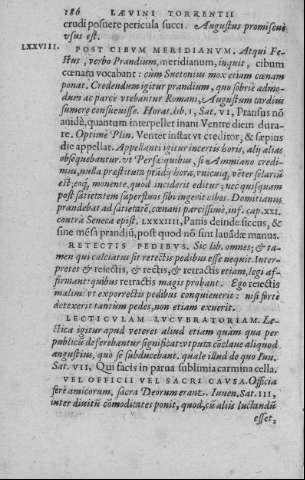 186 LÆVINI TORRENTII
crudi posuere pericula succi. Augustus promiscuè
vsus est.
LXXVIII. POST CIBVM MERIDIANVM. Atqui Fe-
stus, verbo Prandium, meridianum, inquit, cibum
cœnam vocabant: cùm Suetonius mox etiam cœnam
ponat. Credendum igitur prandium, quo sobriè admo-
dum ac parcè vtebantur Romani, Augustum tardius
sumere consueuisse. Horat. lib. 1, Sat. VI, Pransus nō
auidè, quantum interpellet inani Ventre diem dura-
re. Optimè Plin. Venter instat vt creditor, & sæpius
die appellat. Appellanti igitur incertis horis, alij alias
obsequebantur. vt Persæ quibus, si Ammiano credi-
mus, nulla præstituta prādij hora, vnicuiq, vēter solariū
est; eoq, monente, quod inciderit editur; nec quisquam
post satietatem superfluos sibi ingerit cibos. Domitianus
prandebat ad satietatē, cœnans parcissimè, inf. cap. XXI.
contrà Seneca epist. LXXXIIII, Panis deinde siccus, &
sine mēsa prandiū, post quod nō sunt lauādæ manus.
RETECTIS PEDIBVS. Sic lib. omnes; & ta-
men qui calciatus sit retectis pedibus esse nequit. Inter-
pretes & reiectis, & rectis, & retractis etiam, legi af-
firmant: quibus retractis magis probant. Ego reiectis
malim: vt exporrectis pedibus conquieuerit: nisi fortè
detexerit tantùm pedes, non etiam exuerit.
LECTICVLAM LVCVBRATORIAM. Le-
ctica igitur apud veteres aliud etiam quàm qua per
publicū deferebantur significat: vt puta cōclaue aliquod
angustius, quo se subducebant. quale illud de quo Iuu.
Sat. VII, Qui facis in parua sublimia carmina cella.
VEL OFFICII VEL SACRI CAVSA. Officia
ferè amicorum, sacra Deorum erant. Iuuen. Sat. III,
inter diuitū cōmoditates ponit, quod, cū alijs luctandū
esset,